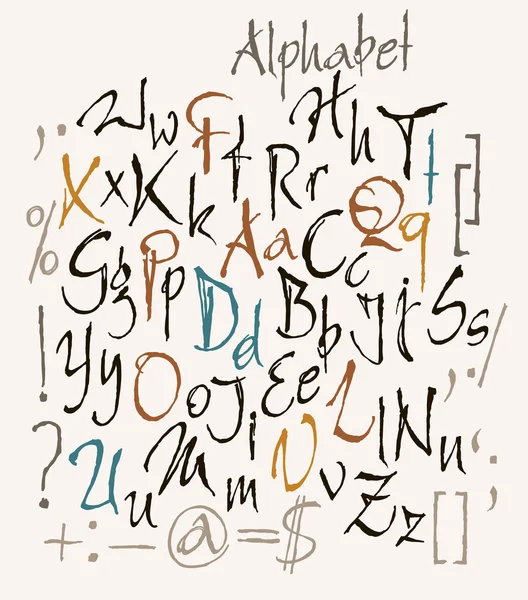 Alphabet
, . W w F f H h T t
X x K k R r Q q ]
% A a C c
G g P p D d B b J j S s
! Y y O o I i E e L l N n , . /
? U u M m V v Z z ' . ,
+ : – @ = $ [ ]